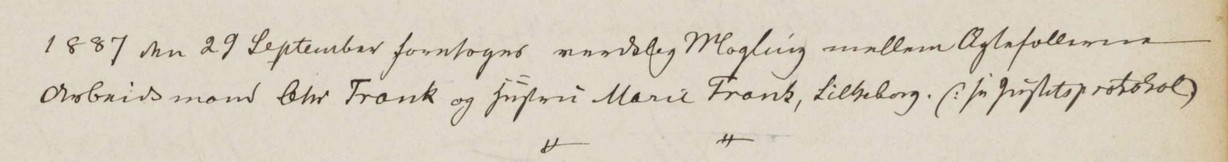 1887 den 29 September foretoges verdslig Mægling mellem Ægtefollerne
Arbeidsmand Chr Frank og Hustru Marie Frank, Silkeborg. (: se Justitsprotokol)